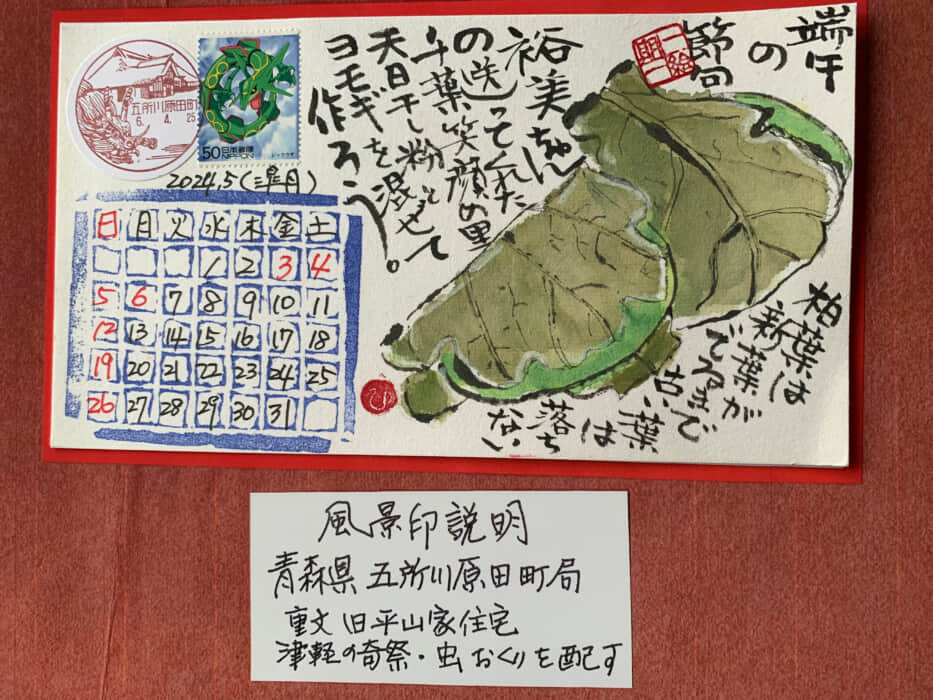 端午
の
節句
裕美ちゃん
の送ってくれた
千葉笑顔の里
天日干し粉と
ヨモギを混ぜて
作ろう。
柏葉は
新葉が
でるまで
葉は
落ち
ない
五所川原田町
6. 4. 25
50 日本郵便
NIPPON
2024.5(皐月)
日 月 火 水 木 金 土
1 2 3 4
5 6 7 8 9 10 11
12 13 14 15 16 17 18
19 20 21 22 23 24 25
26 27 28 29 30 31
風景印説明
青森県 五所川原田町局
重文 旧平山家住宅
津軽の奇祭・虫おくりを配す